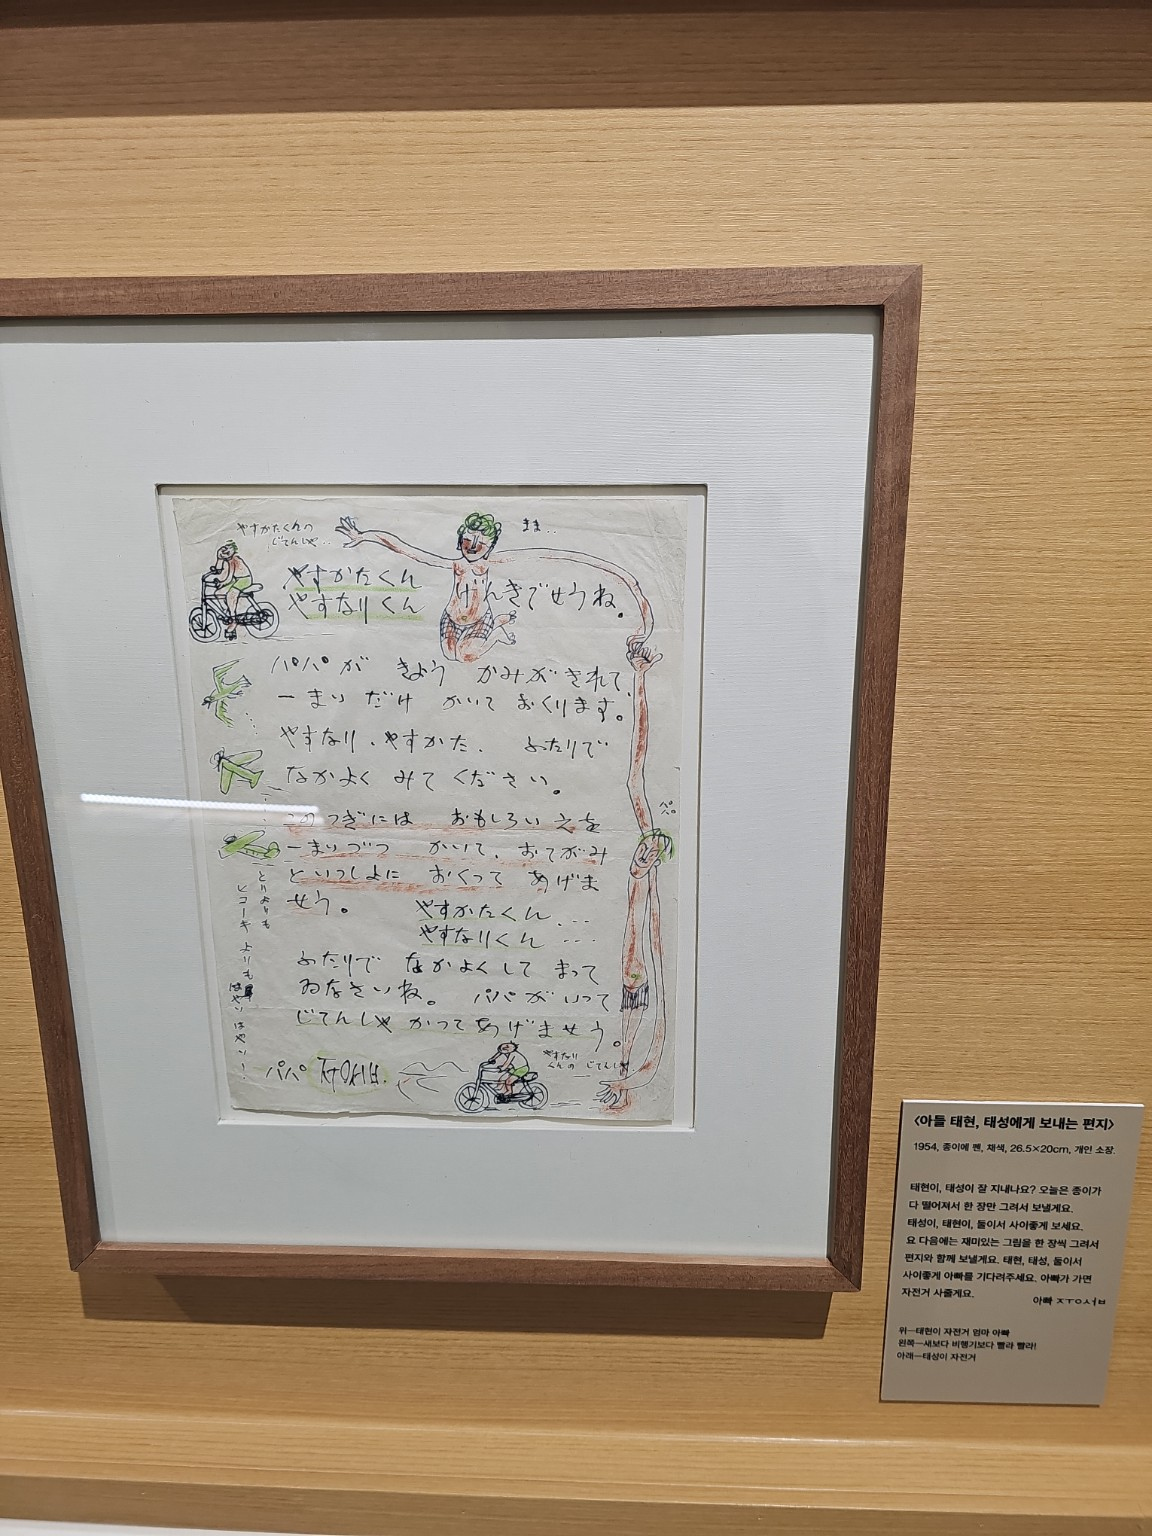 やすかたくんの
じてんしゃ..
まま..
やすかたくん
やすなりくん
げんきでせうね。
パパが きよう かみがきれて、
一まい だけ かいて おくります。
やすなり、やすかた、 ふたりで
なかよく みて ください。
このつぎには おもしろい えを
一まいづつ かいて、おてがみ
といつしよに おくって あげま
せう。
やすかたくん ...
やすなりくん ....
ふたりで なかよくして まって
ゐなさいね。 パパがいって
じてんしゃ かってあげませう。
パパ ㅈㅜㅇㅅㅓㅂ.
パパ
とりよりも
ヒコーキ よりも
はやい はやい!
やすなり
くんの じてんしゃ
〈아들 태현, 태성에게 보내는 편지〉
1954, 종이에 펜, 채색, 26.5×20cm, 개인 소장.
태현이, 태성이 잘 지내나요? 오늘은 종이가
다 떨어져서 한 장만 그려서 보낼게요.
태성이, 태현이, 둘이서 사이좋게 보세요.
요 다음에는 재미있는 그림을 한 장씩 그려서
편지와 함께 보낼게요. 태현, 태성, 둘이서
사이좋게 아빠를 기다려주세요. 아빠가 가면
자전거 사줄게요.
아빠 ㅈㅜㅇㅅㅓㅂ
위—태현이 자전거 엄마 아빠
왼쪽—새보다 비행기보다 빨라 빨라!
아래—태성이 자전거